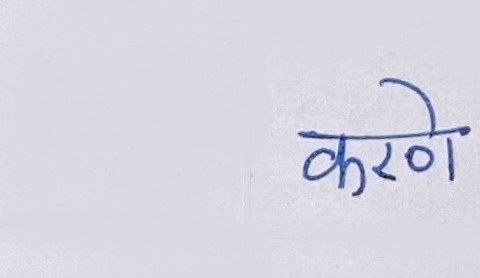 करणे